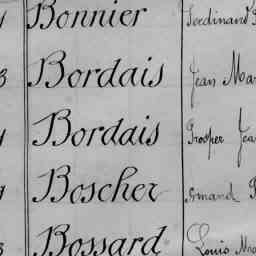 Bonnier Ferdinand
Bordais Jean Mar
Bordais Prosper Jea
Boscher Armand
Bossard Louis